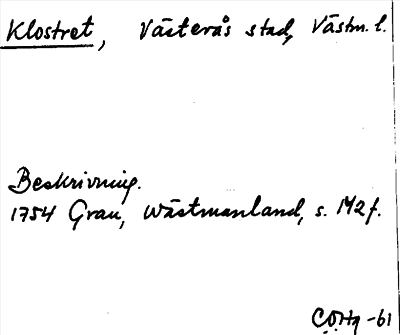 Klostret, Västerås stad, Västm. l.
Beskrivning.
1754 Grau, Wästmanland, s. 142 f.
C.O.Hg -61